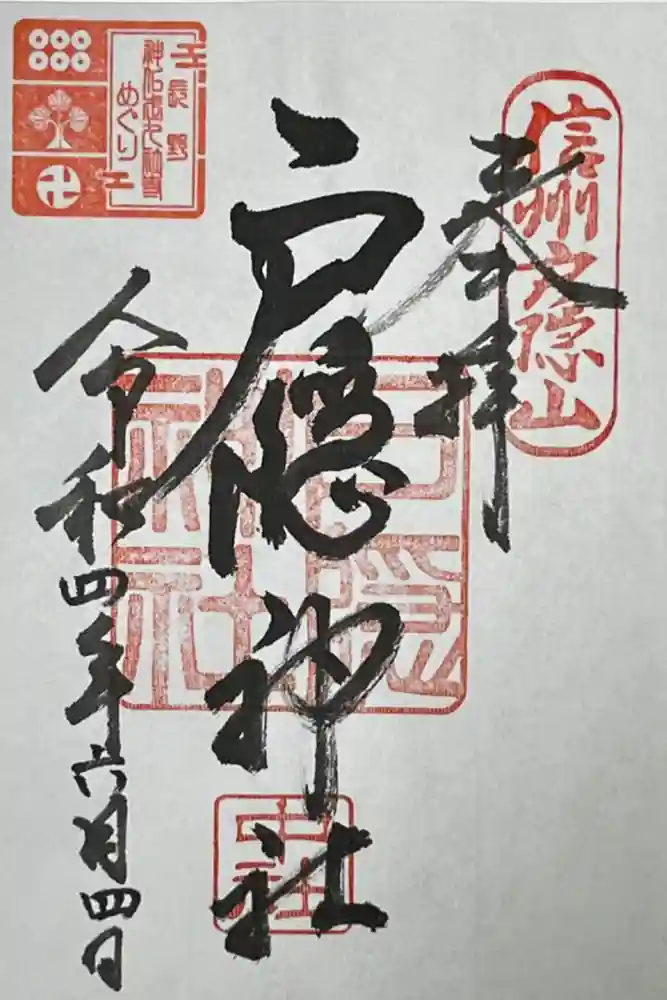 信州戸隠山
奉拝
戸隠神社
戸隠
神社
中社
令和四年六月四日
長野
めぐり